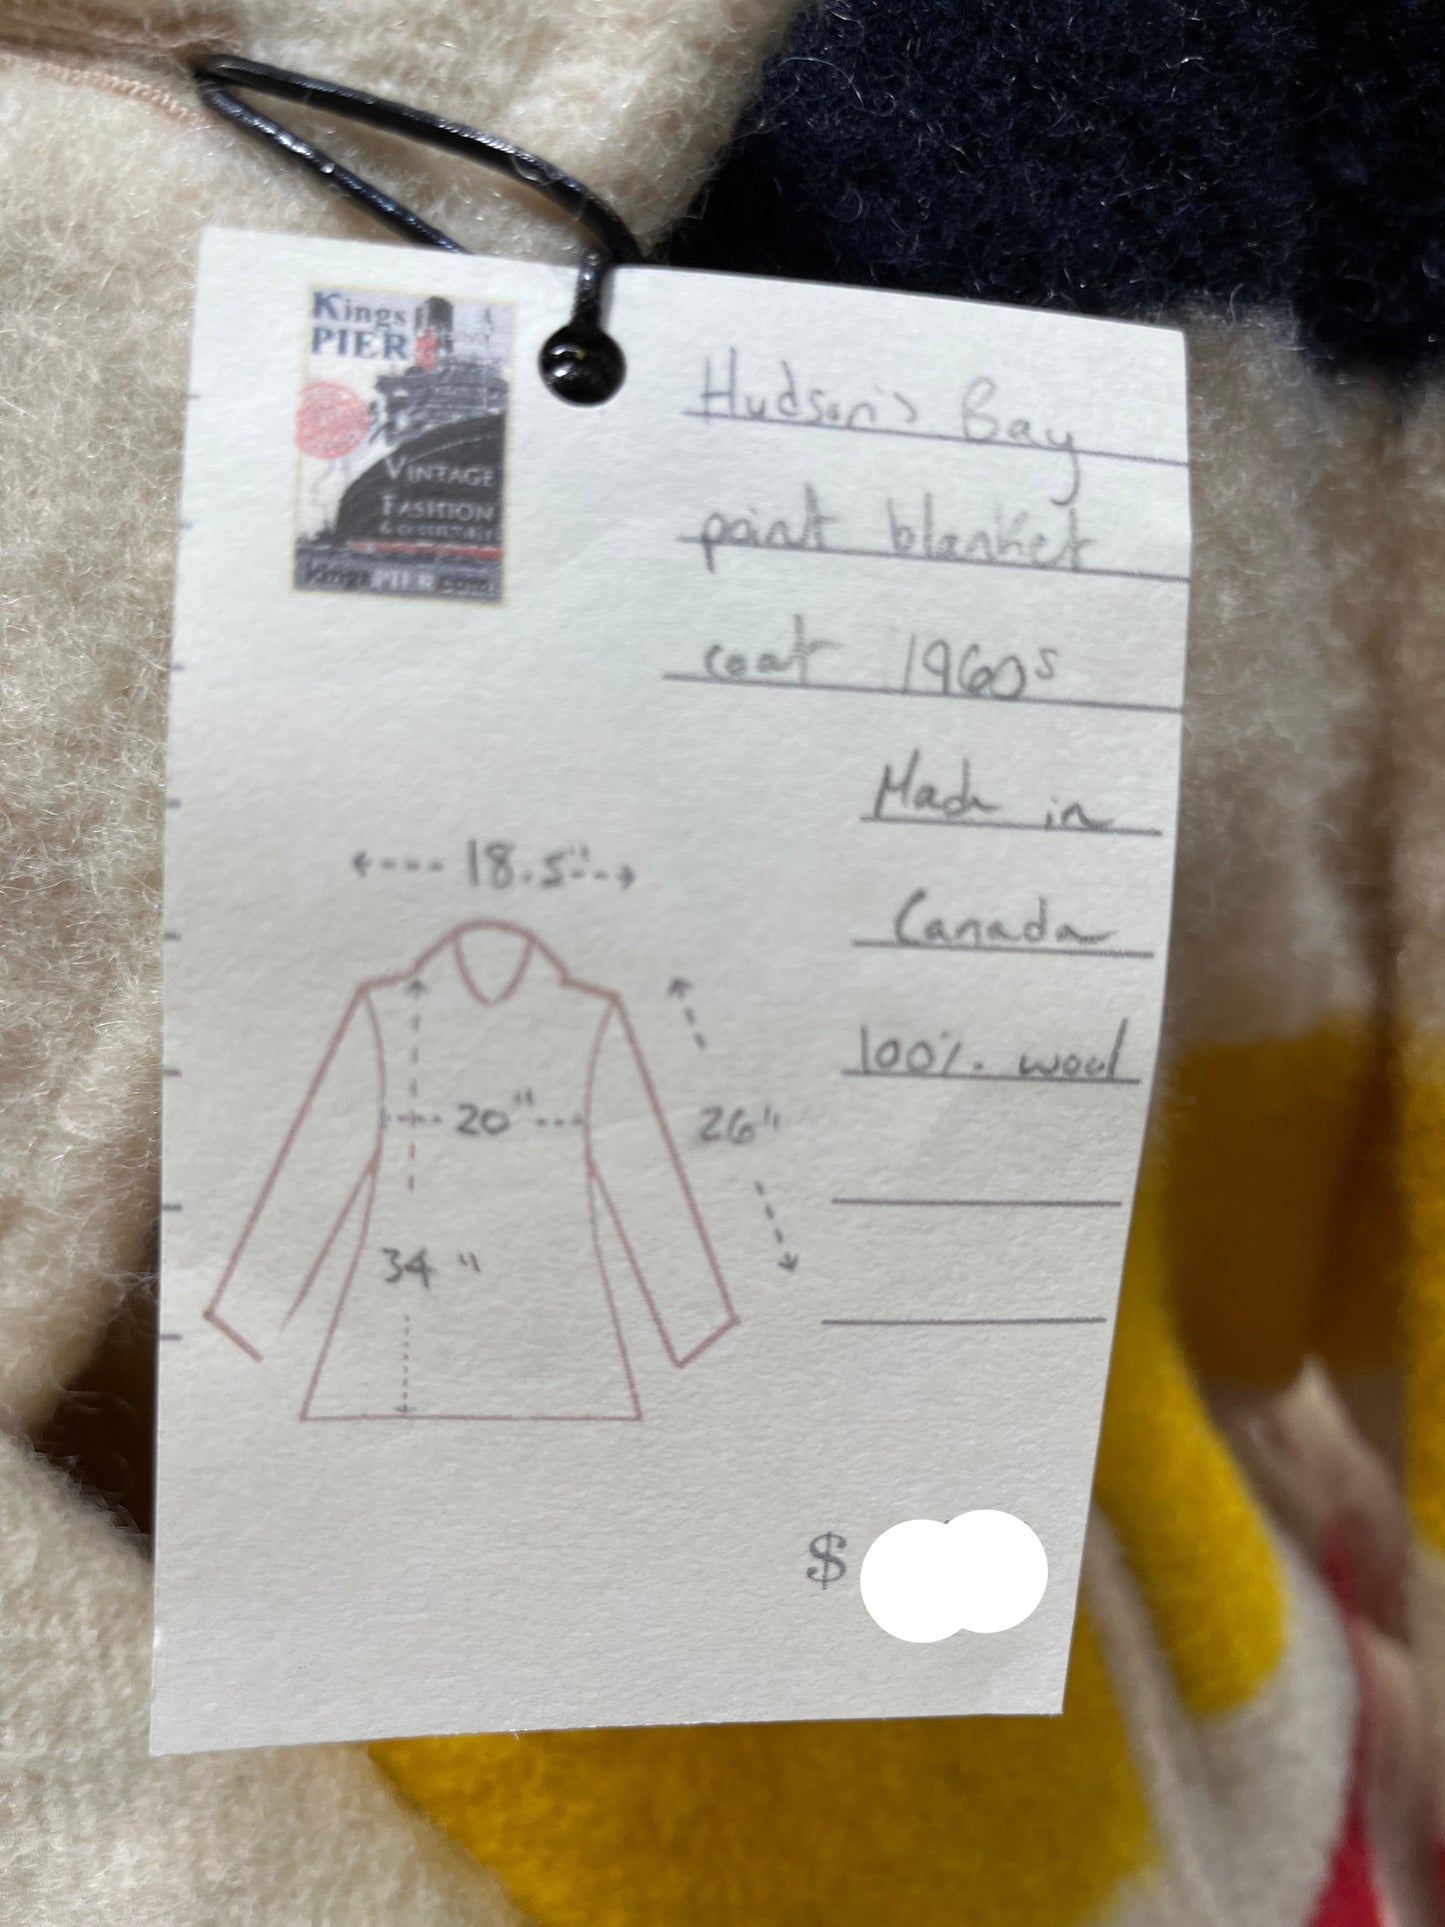 Kings
PIER
VINTAGE
FASHION
kingsPIER.com
Hudson's Bay
point blanket
coat 1960s
Made in
Canada
100% wool
18.5"
20"
26"
34"
$